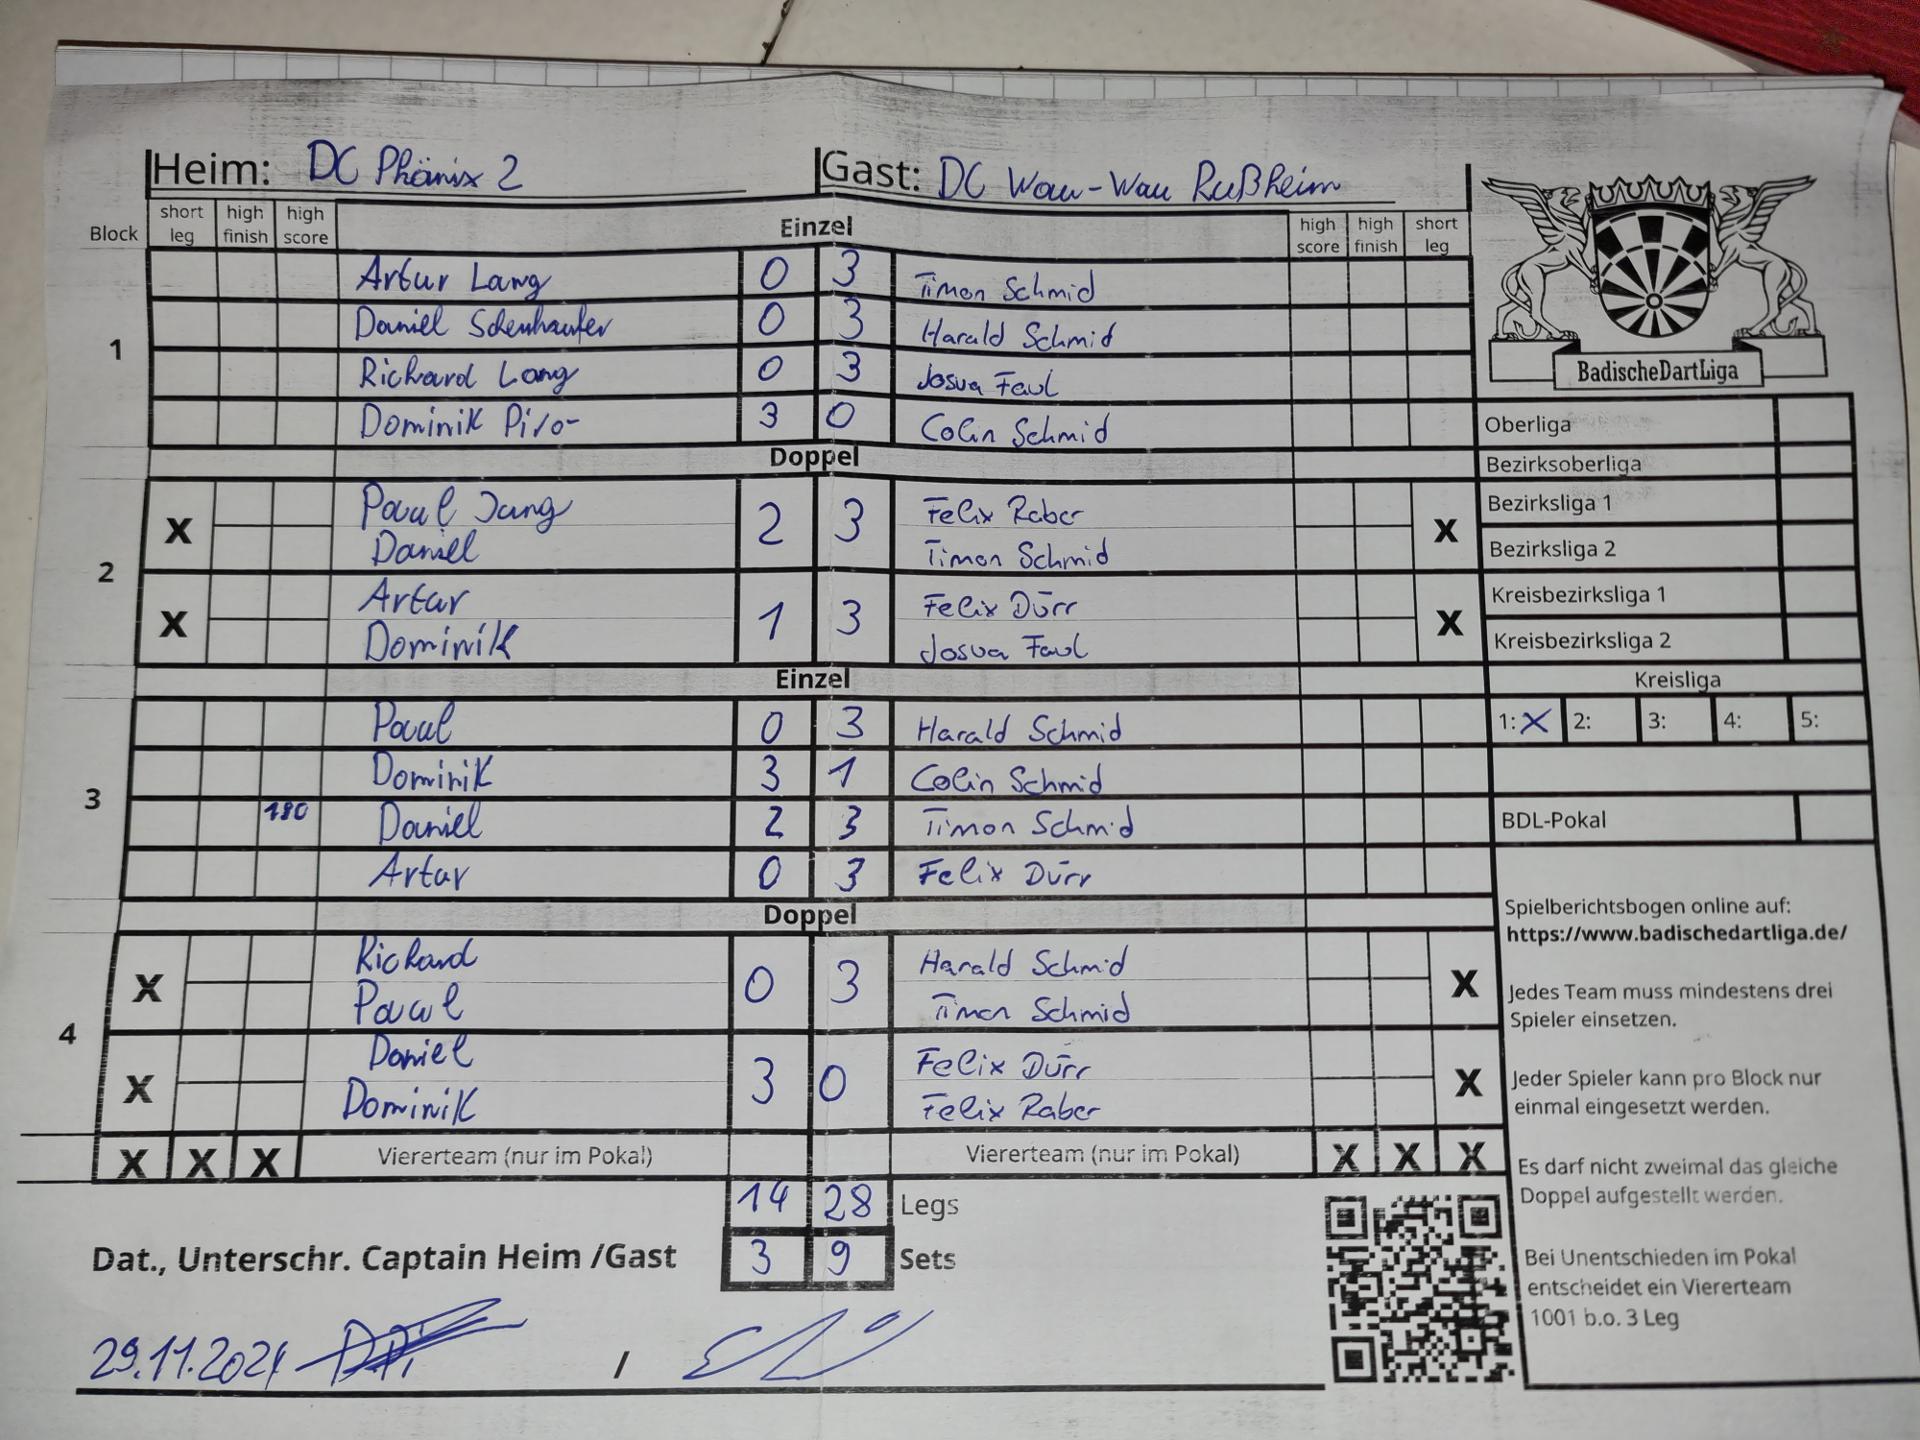 Heim: DC Phönix 2 Gast: DC Wau-Wau Rußheim
Block short leg high finish high score Einzel high score high finish short leg
1
Artur Lang 0 3 Timon Schmid
Daniel 0 3 Harald Schmid
Richard Lang 0 3 Josua Faul
Dominik 3 0 Colin Schmid
Doppel
2
X Paul Jang 2 3 Felix Raber X
Daniel Timon Schmid
X Artur 1 3 Felix Dürr X
Dominik Josua Faul
Einzel
3
Paul 0 3 Harald Schmid
Dominik 3 1 Colin Schmid
180 Daniel 2 3 Timon Schmid
Artur 0 3 Felix Dürr
Doppel
4
X Richard 0 3 Harald Schmid X
Paul Timon Schmid
X Daniel 3 0 Felix Dürr X
Dominik Felix Raber
X X X Viererteam (nur im Pokal) Viererteam (nur im Pokal) X X X
14 28 Legs
Dat., Unterschr. Captain Heim /Gast 3 9 Sets
29.11.2024 /
BadischeDartLiga
Oberliga
Bezirksoberliga
Bezirksliga 1
Bezirksliga 2
Kreisbezirksliga 1
Kreisbezirksliga 2
Kreisliga
1: X 2: 3: 4: 5:
BDL-Pokal
Spielberichtsbogen online auf:
https://www.badischedartliga.de/
Jedes Team muss mindestens drei
Spieler einsetzen.
Jeder Spieler kann pro Block nur
einmal eingesetzt werden.
Es darf nicht zweimal das gleiche
Doppel aufgestellt werden.
Bei Unentschieden im Pokal
entscheidet ein Viererteam
1001 b.o. 3 Leg